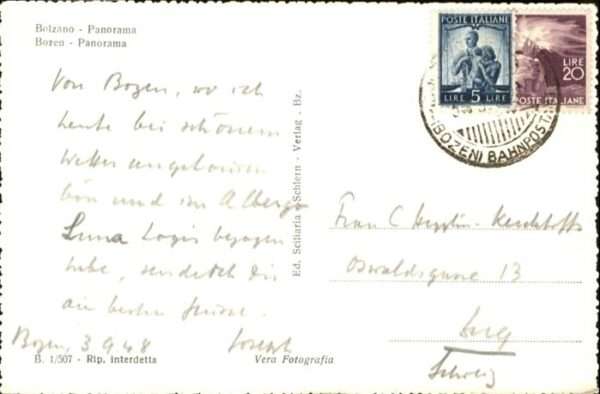 Bolzano - Panorama
Bozen - Panorama
Von Bozen, wo ich
heute bei schönem
Wetter angekommen
bin und im Albergo
Luna Logis bezogen
habe, sende ich Dir
die besten Grüsse.
Bozen, 3 9 48 Joseph
B. 1/507 - Rip. interdetta
Vera Fotografia
Ed. Sciliaria - Schlern - Verlag . Bz.
POSTE ITALIANE
LIRE 5 LIRE
LIRE
20
POSTE ITALIANE
(BOZEN) BAHNPOST
Frau C
Oswaldsgasse 13
Zug
Schweiz